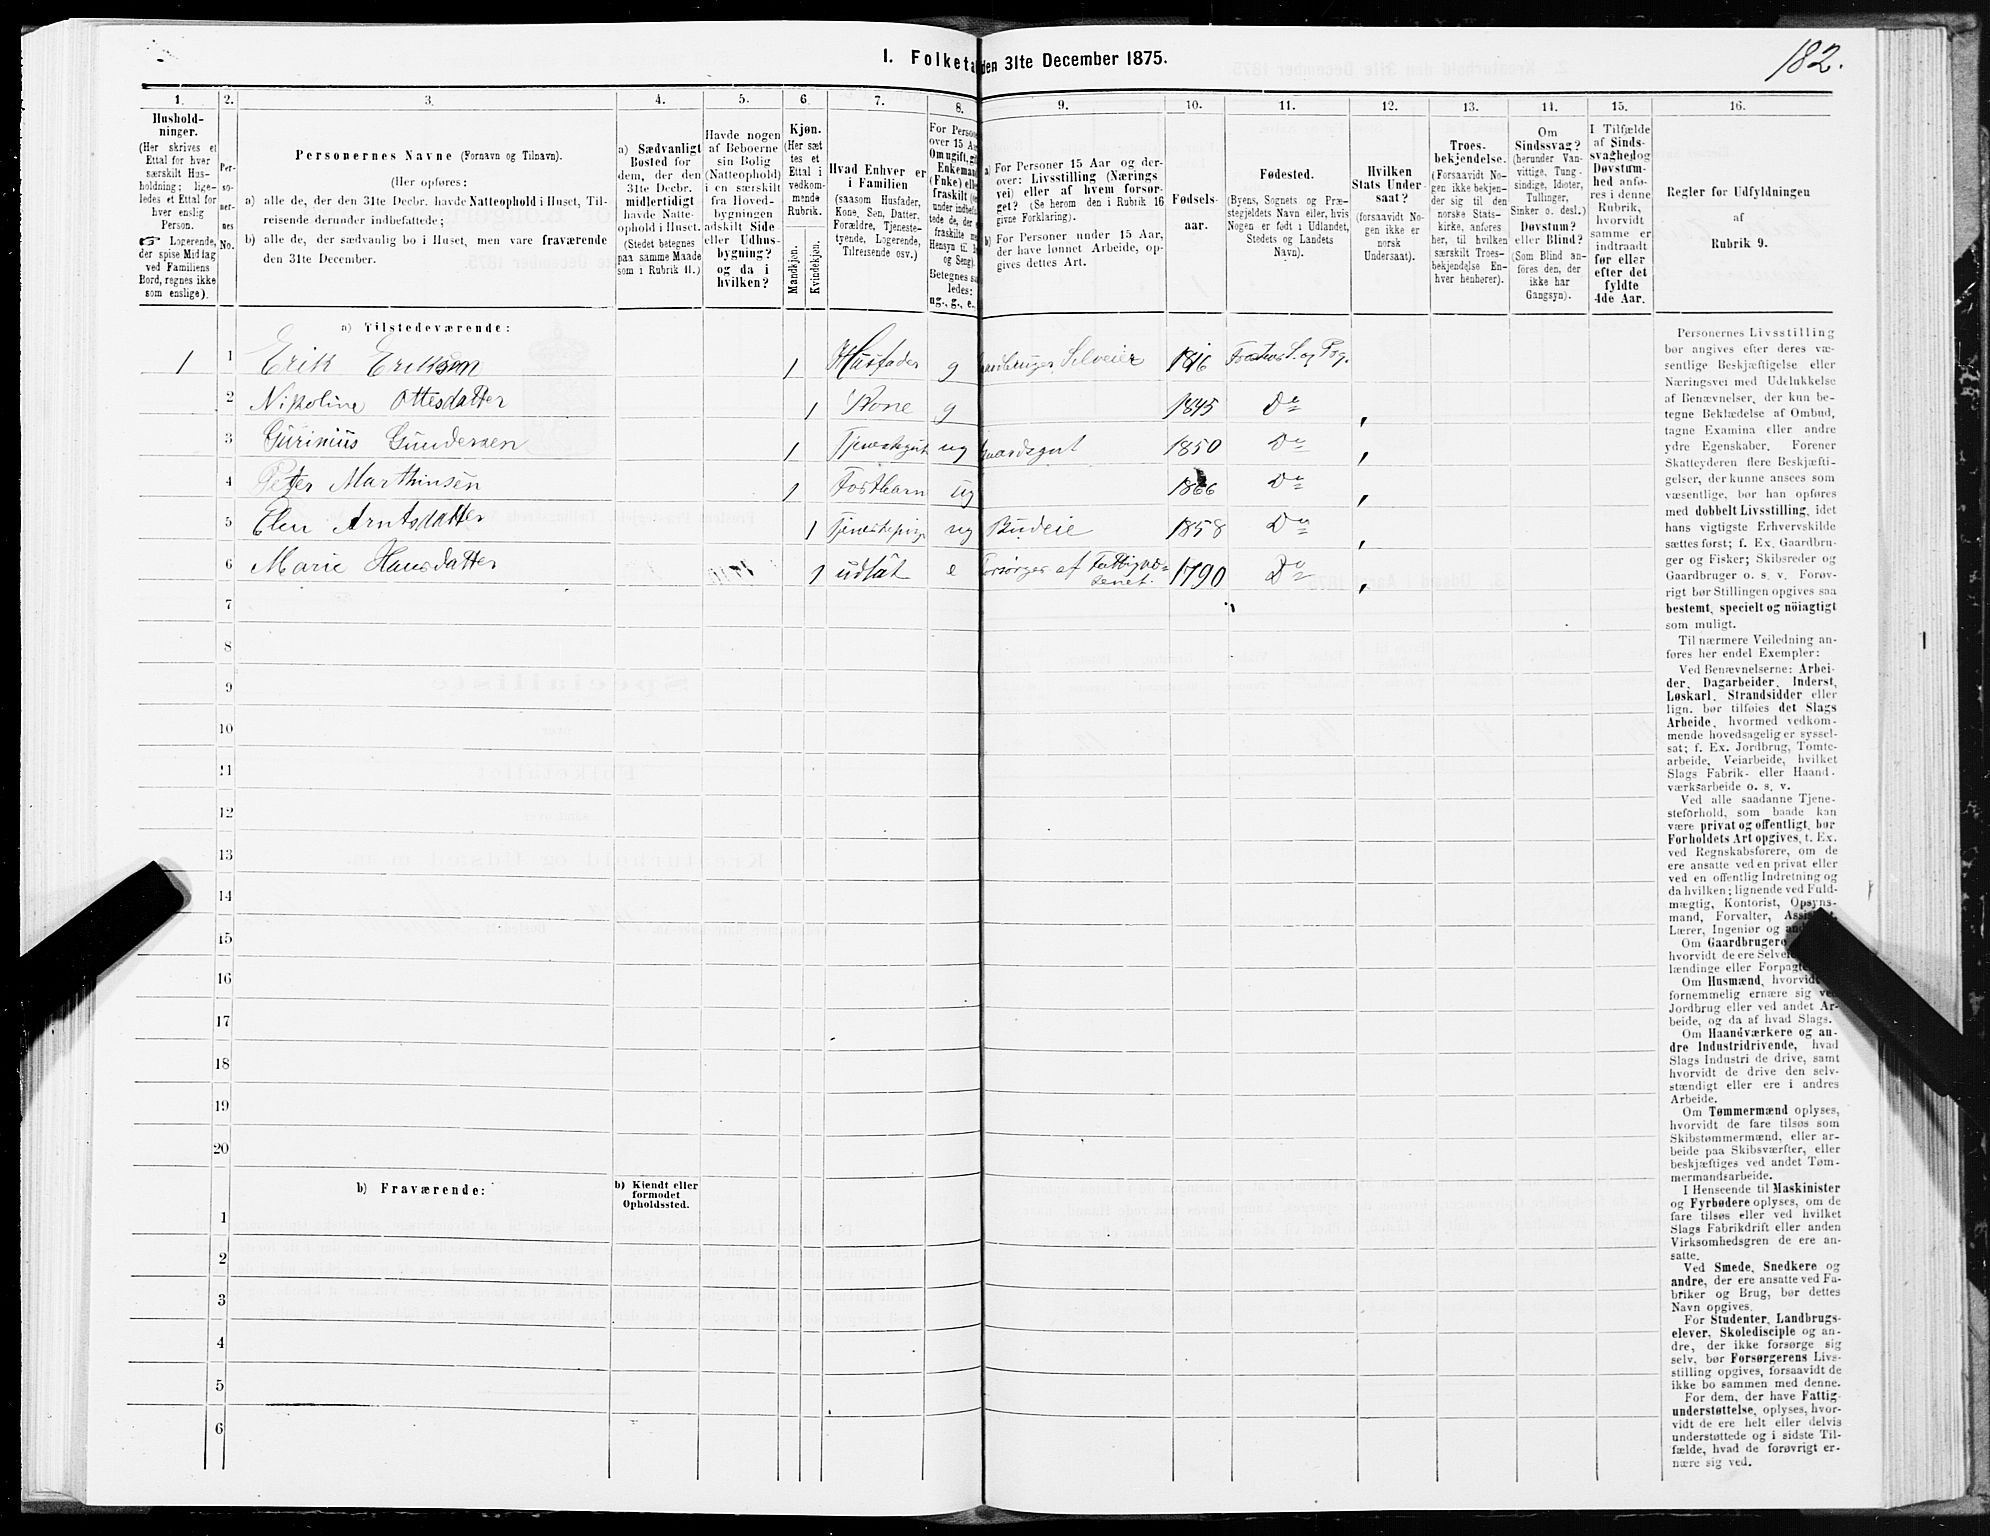 182.
1. Folketa den 31te December 1875.
1. 2. 3. 4. 5. 6. 7. 8. 9. 10. 11. 12. 13. 14. 15. 16.
Hushold-
ninger.
(Her skrives et
Ettal for hver
særskilt Hus-
holdning; lige-
ledes et Ettal for
hver enslig
Person.
☞ Logerende,
der spise Middag
ved Familiens
Bord, regnes ikke
som enslige).
Per-
so-
ner-
nes
No.
Personernes Navne (Fornavn og Tilnavn).
(Her opføres:
a) alle de, der den 31te Decbr. havde Natteophold i Huset, Til-
reisende derunder indbefattede;
b) alle de, der sædvanlig bo i Huset, men vare fraværende
den 31te December.
a) Sædvanligt
Bosted for
dem, der den
31te Decbr.
midlertidigt
havde Natte-
ophold i Huset.
(Stedet betegnes
paa samme Maade
som i Rubrik 11.)
Havde nogen
af Beboerne
sin Bolig
(Natteophold)
i en særskilt
fra Hoved-
bygningen
adskilt Side-
eller Udhus-
bygning?
og da i
hvilken?
Kjøn.
(Her sæt
tes et
Ettal i
vedkom-
mende
Rubrik.
Mandkjøn.
Kvindekjøn.
Hvad Enhver er
i Familien
(saasom Husfader,
Kone, Søn, Datter,
Forældre, Tjeneste-
tyende, Logerende,
Tilreisende osv.)
For Person
over 15 Aar
Om ugift, gif
Enkemand
(Enke) elle
fraskilt (her
under indbefat
tede de, der er
fraskilte med
Hensyn til
og Seng).
Betegnes saa
ledes:
ug., g., e.,
a) For Personer 15 Aar og der-
over: Livsstilling (Nærings
vei) eller af hvem forsør-
get? (Se herom den i Rubrik 16
givne Forklaring).
b) For Personer under 15 Aar,
der have lønnet Arbeide, op-
gives dettes Art.
Fødsels-
aar.
Fødested.
(Byens, Sognets og Præ-
stegjeldets Navn eller, hvis
Nogen er født i Udlandet,
Stedets og Landets
Navn).
Hvilken
Stats Under-
saat?
(forsaavidt No-
gen ikke er
norsk
Undersaat).
Troes-
bekjendelse.
(Forsaavidt No-
gen ikke bekjen-
der sig til den
norske Stats-
kirke, anføres
her, til hvilken
særskilt Troes-
bekjendelse En-
hver henhører).
Om
Sindssvag?
(herunder Van-
vittige, Tung-
sindige, Idioter,
Tullinger,
Sinker o. desl.)
Døvstum?
eller Blind?
(Som Blind an-
føres den, der
ikke har
Gangsyn).
I Tilfælde
af Sinds-
svaghed og
Døvstum-
hed anfø-
res i denne
Rubrik,
hvorvidt
samme er
indtraadt
før eller
efter det
fyldte
4de Aar.
Regler for Udfyldningen
af
Rubrik 9.
a) Tilstedeværende:
1 1 Erik Eriksen 1 Husfader g Gaardbruger Selveier 1816 Frostas S. og Pg.
2 Nikoline Ottesdatter 1 Kone g 1845 Do
3 Gurinius Gundersen 1 Tjenestegut ug Gaardsgut 1850 Do
4 Peter Marthinsen 1 Fostbarn ug 1866 Do
5 Elen Arntsdatter 1 Tjenestepige ug Budeie 1858 Do
6 Marie Hansdatter 1 udsat e Forsørges af Fattigvæ-
senet. 1790 Do
7
8
9
10
11
12
13
14
15
16
17
18
19
20
b) Fraværende:
b) Kjendt eller
formodet
Opholdssted.
1
2
3
4
5
6
Personernes Livsstilling
bør angives efter deres væ-
sentlige Beskjæftigelse eller
Næringsvei med Udelukkelse
af Benævnelser, der kun be-
tegne Beklædelse af Ombud,
tagne Examina eller andre
ydre Egenskaber. Forener
Skatteyderen flere Beskjæfti-
gelser, der kunne ansees som
væsentlige, bør han opføres
med dobbelt Livsstilling, idet
hans vigtigste Erhvervskilde
sættes først; f. Ex. Gaardbru-
ger og Fisker; Skibsreder og
Gaardbruger o. s. v. Forøv-
rigt bør Stillingen opgives saa
bestemt, specielt og nöiagtigt
som muligt.
Til nærmere Veiledning an-
føres her endel Exempler:
Ved Benævnelserne: Arbei-
der, Dagarbeider, Inderst,
Løskarl, Strandsidder eller
lign. bør tilføies det Slags
Arbeide, hvormed vedkom-
mende hovedsagelig er syssel-
sat; f. Ex. Jordbrug, Tomte-
arbeide, Veiarbeide, hvilket
Slags Fabrik- eller Haand-
værksarbeide o. s. v.
Ved alle saadanne Tjene-
steforhold, som baade kan
være privat og offentligt, bør
Forholdets Art opgives, t. Ex.
ved Regnskabsførere, om de
ere ansatte ved en privat eller
ved en offentlig Indretning og
da hvilken; lignende ved Fuld-
mægtig, Kontorist, Opsyns-
mand, Forvalter, Assistent,
Lærer, Ingeniør og
Om Gaardbrugere
hvorvidt de ere
lændinge eller
Om Husmænd, hvorvidt
fornemmelig ernære sig ved
Jordbrug eller ved andet Ar-
beide, og da af hvad Slags.
Om Haandværkere og an-
dre Industridrivende, hvad
Slags Industri de drive, samt
hvorvidt de drive den selv-
stændigt eller ere i andres
Arbeide.
Om Tømmermænd oplyses,
hvorvidt de fare tilsøs som
Skibstømmermænd, eller ar-
beide paa Skibsværfter, eller
beskjæftiges ved andet Tøm-
mermandsarbeide.
I Henseende til Maskinister
og Fyrbødere oplyses, om de
fare tilsøs eller ved hvilket
Slags Fabrikdrift eller anden
Virksomhedsgren de ere an-
satte.
Ved Smede, Snedkere og
andre, der ere ansatte ved Fa-
briker og Brug, bør dettes
Navn opgives.
For Studenter, Landbrugs-
elever, Skoledisciple og an-
dre, der ikke forsørge sig
selv, bør Forsørgerens Livs-
stilling opgives, forsaavidt de
ikke bo sammen med denne.
For dem, der have Fattig-
understøttelse, oplyses, hvor-
vidt de ere helt eller delvis
understøttede og i sidste Til-
fælde, hvad de forøvrigt er-
nære sig ved.